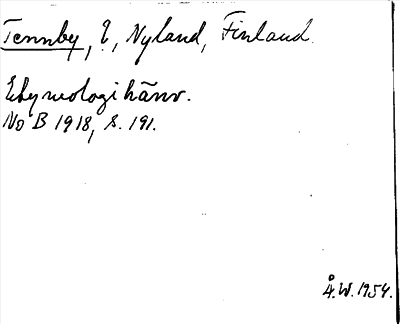 Tennby, ?, Nyland, Finland.
Etymologi hänv.
No B 1918, s. 191.
Å.W. 1954.